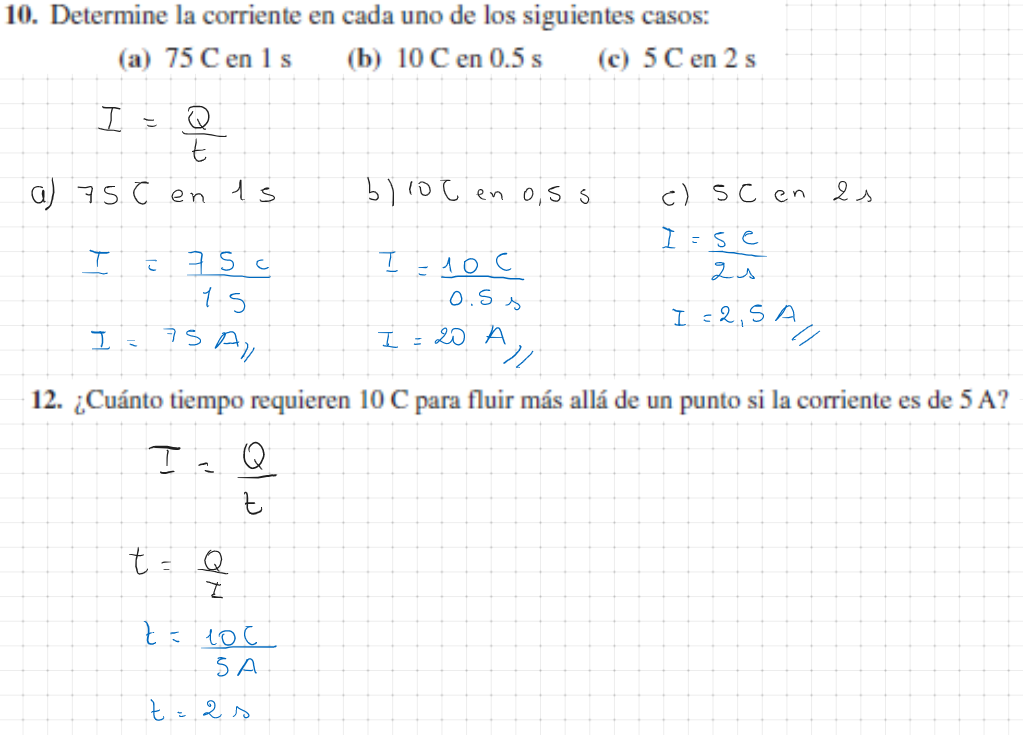 10. Determine la corriente en cada uno de los siguientes casos:
(a) 75 C en 1 s (b) 10 C en 0.5 s (c) 5 C en 2 s
I = Q/t
a) 75 C en 1 s b) 10 C en 0,5 s c) 5 C en 2 s
I = 75 C/1 s I = 10 C/0.5 s I = 5 C/2 s
I = 75 A// I = 20 A// I = 2,5 A//
12. ¿Cuánto tiempo requieren 10 C para fluir más allá de un punto si la corriente es de 5 A?
I = Q/t
t = Q/I
t = 10 C/5 A
t = 2 s